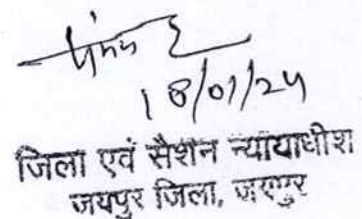 18/01/24
जिला एवं सैशन न्यायाधीश
जयपुर जिला, जयपुर